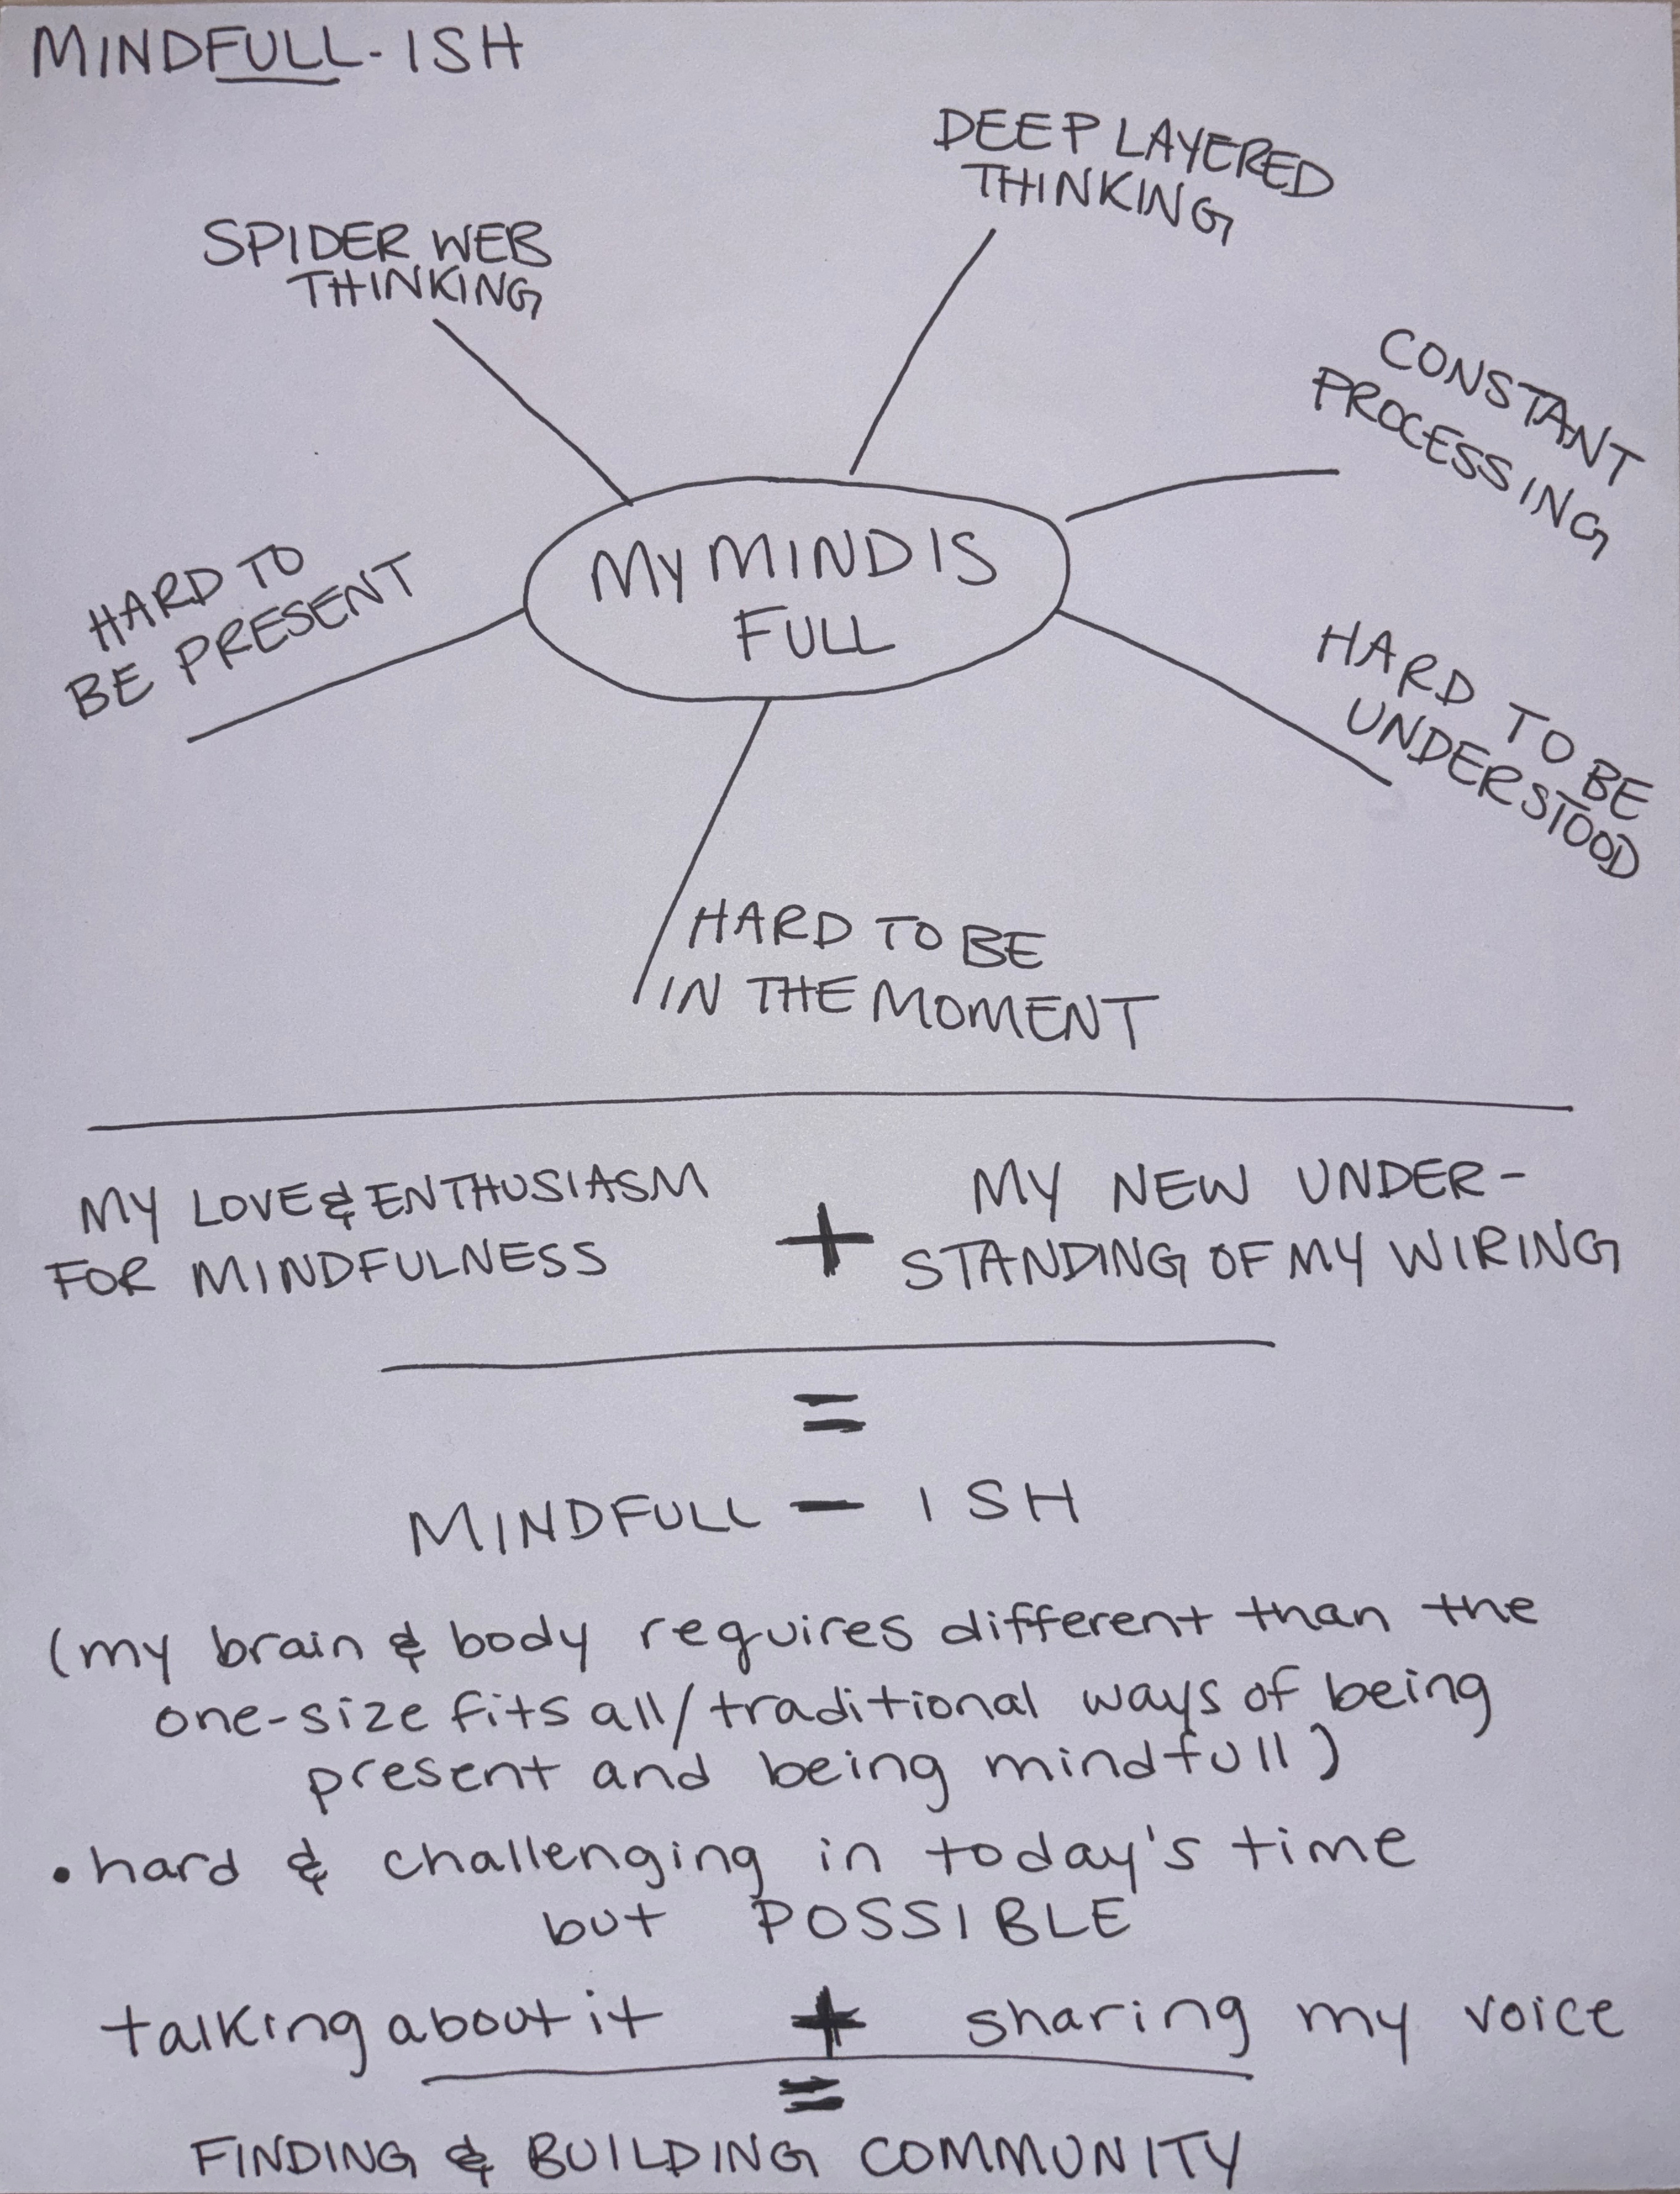 MINDFULL-ISH
DEEP LAYERED
THINKING
SPIDER WEB
THINKING
CONSTANT
PROCESSING
HARD TO
BE PRESENT
MY MIND IS
FULL
HARD TO BE
UNDERSTOOD
HARD TO BE
IN THE MOMENT
MY LOVE & ENTHUSIASM
FOR MINDFULNESS
+
MY NEW UNDER-
STANDING OF MY WIRING
=
MINDFULL - ISH
(my brain & body requires different than the
one-size fits all/traditional ways of being
present and being mindfull)
• hard & challenging in today's time
but POSSIBLE
talking about it + sharing my voice
=
FINDING & BUILDING COMMUNITY